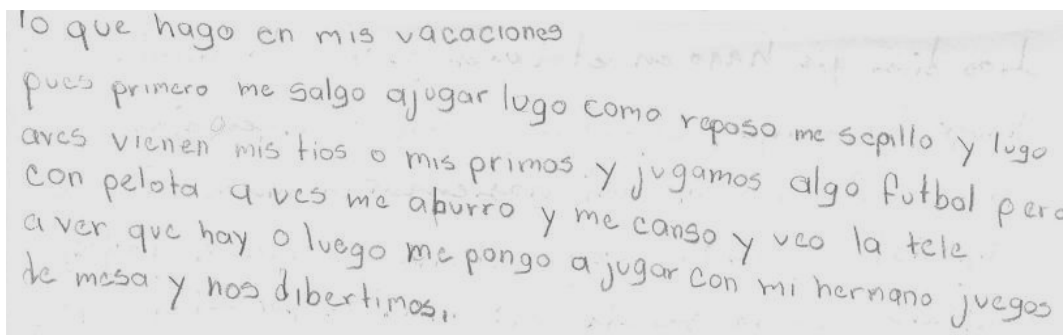 lo que hago en mis vacaciones
pues primero me salgo ajugar lugo como reposo me sepillo y lugo
aves vienen mis tios o mis primos y jugamos algo futbol pero
con pelota a ves me aburro y me canso y veo la tele
a ver que hay o luego me pongo a jugar con mi hermano juegos
de mesa y nos dibertimos.